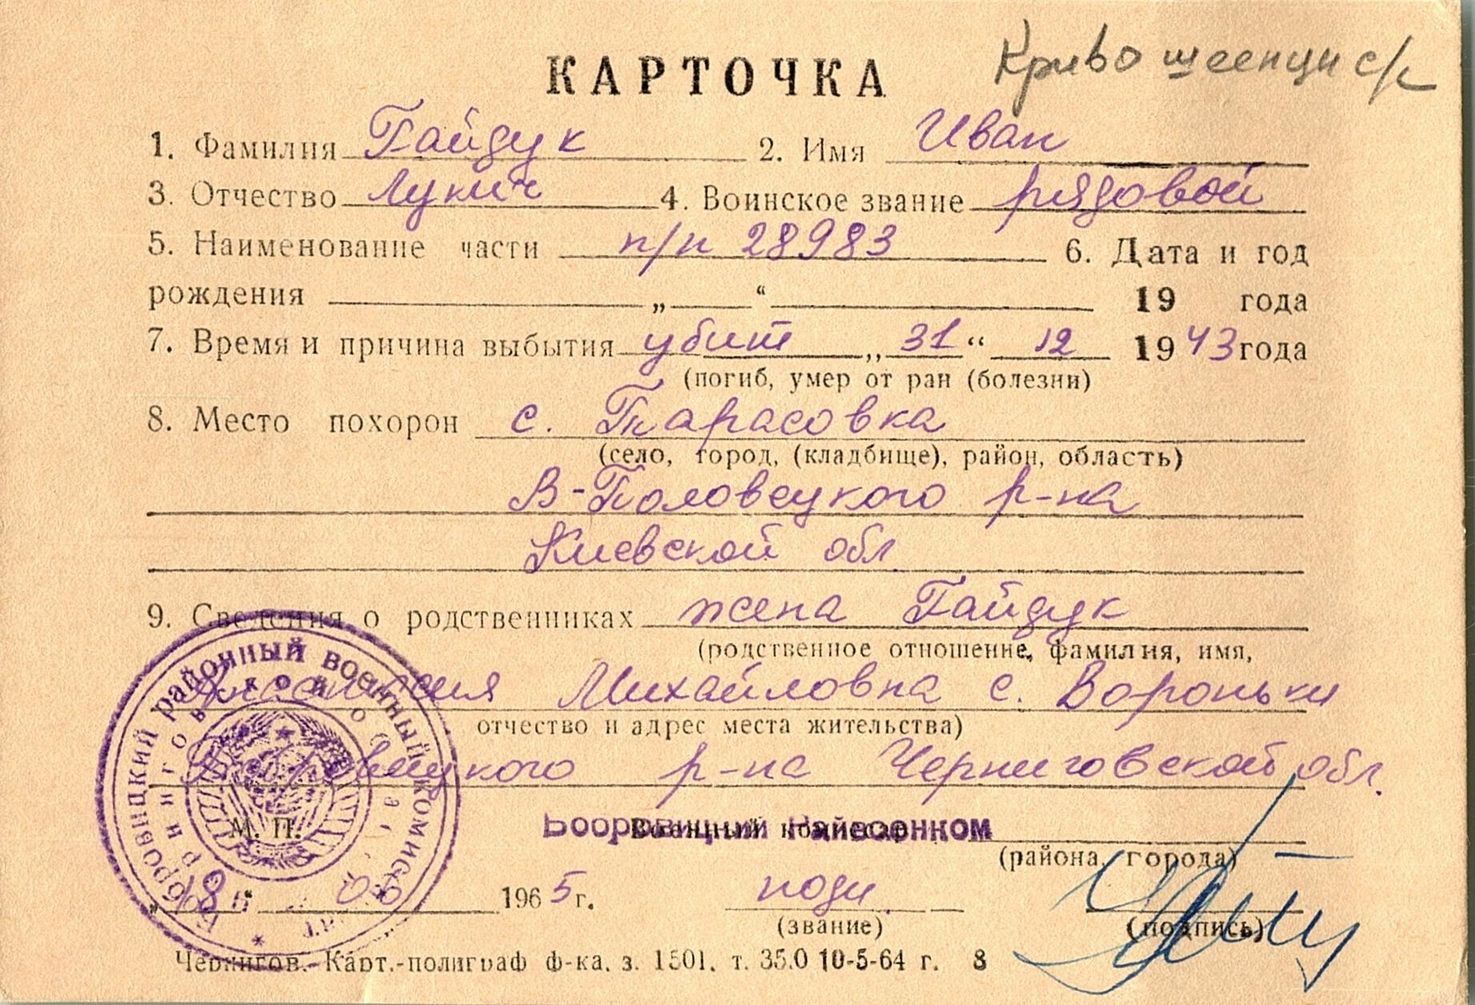 Кривошеенци с/с
КАРТОЧКА
1. Фамилия Гайдук 2. Имя Иван
3. Отчество Лукич 4. Воинское звание рядовой
5. Наименование части п/п 28983 6. Дата и год
рождения „ “ 19 года
7. Время и причина выбытия убит „31“ 12 1943 года
(погиб, умер от ран (болезни)
8. Место похорон с. Тарасовка
(село, город, (кладбище), район, область)
В-Половецкого р-на
Киевской обл.
9. Сведения о родственниках жена Гайдук
(родственное отношение, фамилия, имя,
Михайловна с. Вороньки
отчество и адрес места жительства)
р-на Черниговской обл.
М. П. Военный комиссар
Бобровицкий Райвоенком
(района, города)
„18“ 06 1965 г. подп.
(звание) (подпись)
Чернигов. Карт.-полиграф ф-ка. з. 1501. т. 35.0 10-5-64 г. 8
Бобровицкий районный военный комиссариат
Черниговской области